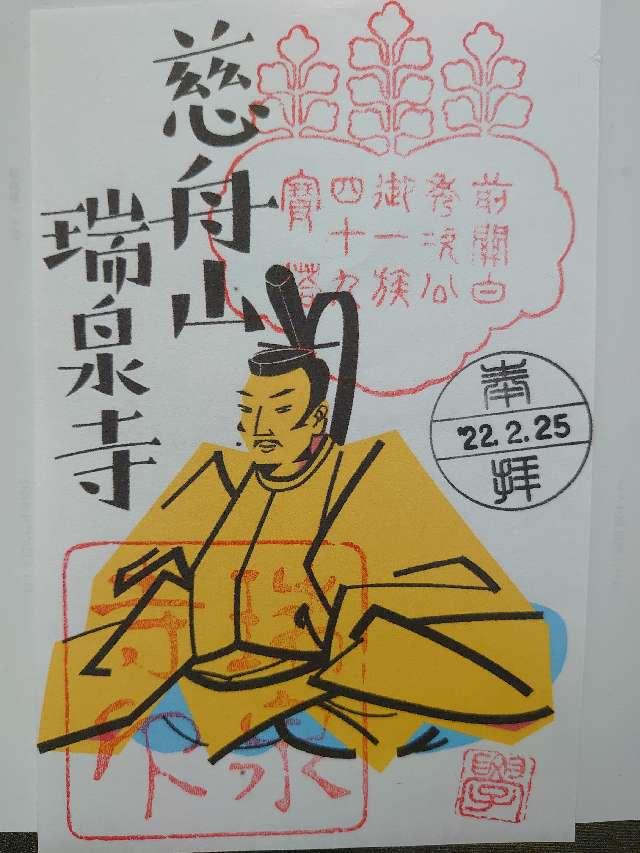 慈舟山
瑞泉寺
前關白
秀次公
御一族
四十九
寶塔
奉
'22.2.25
拝
瑞泉
寺印
學